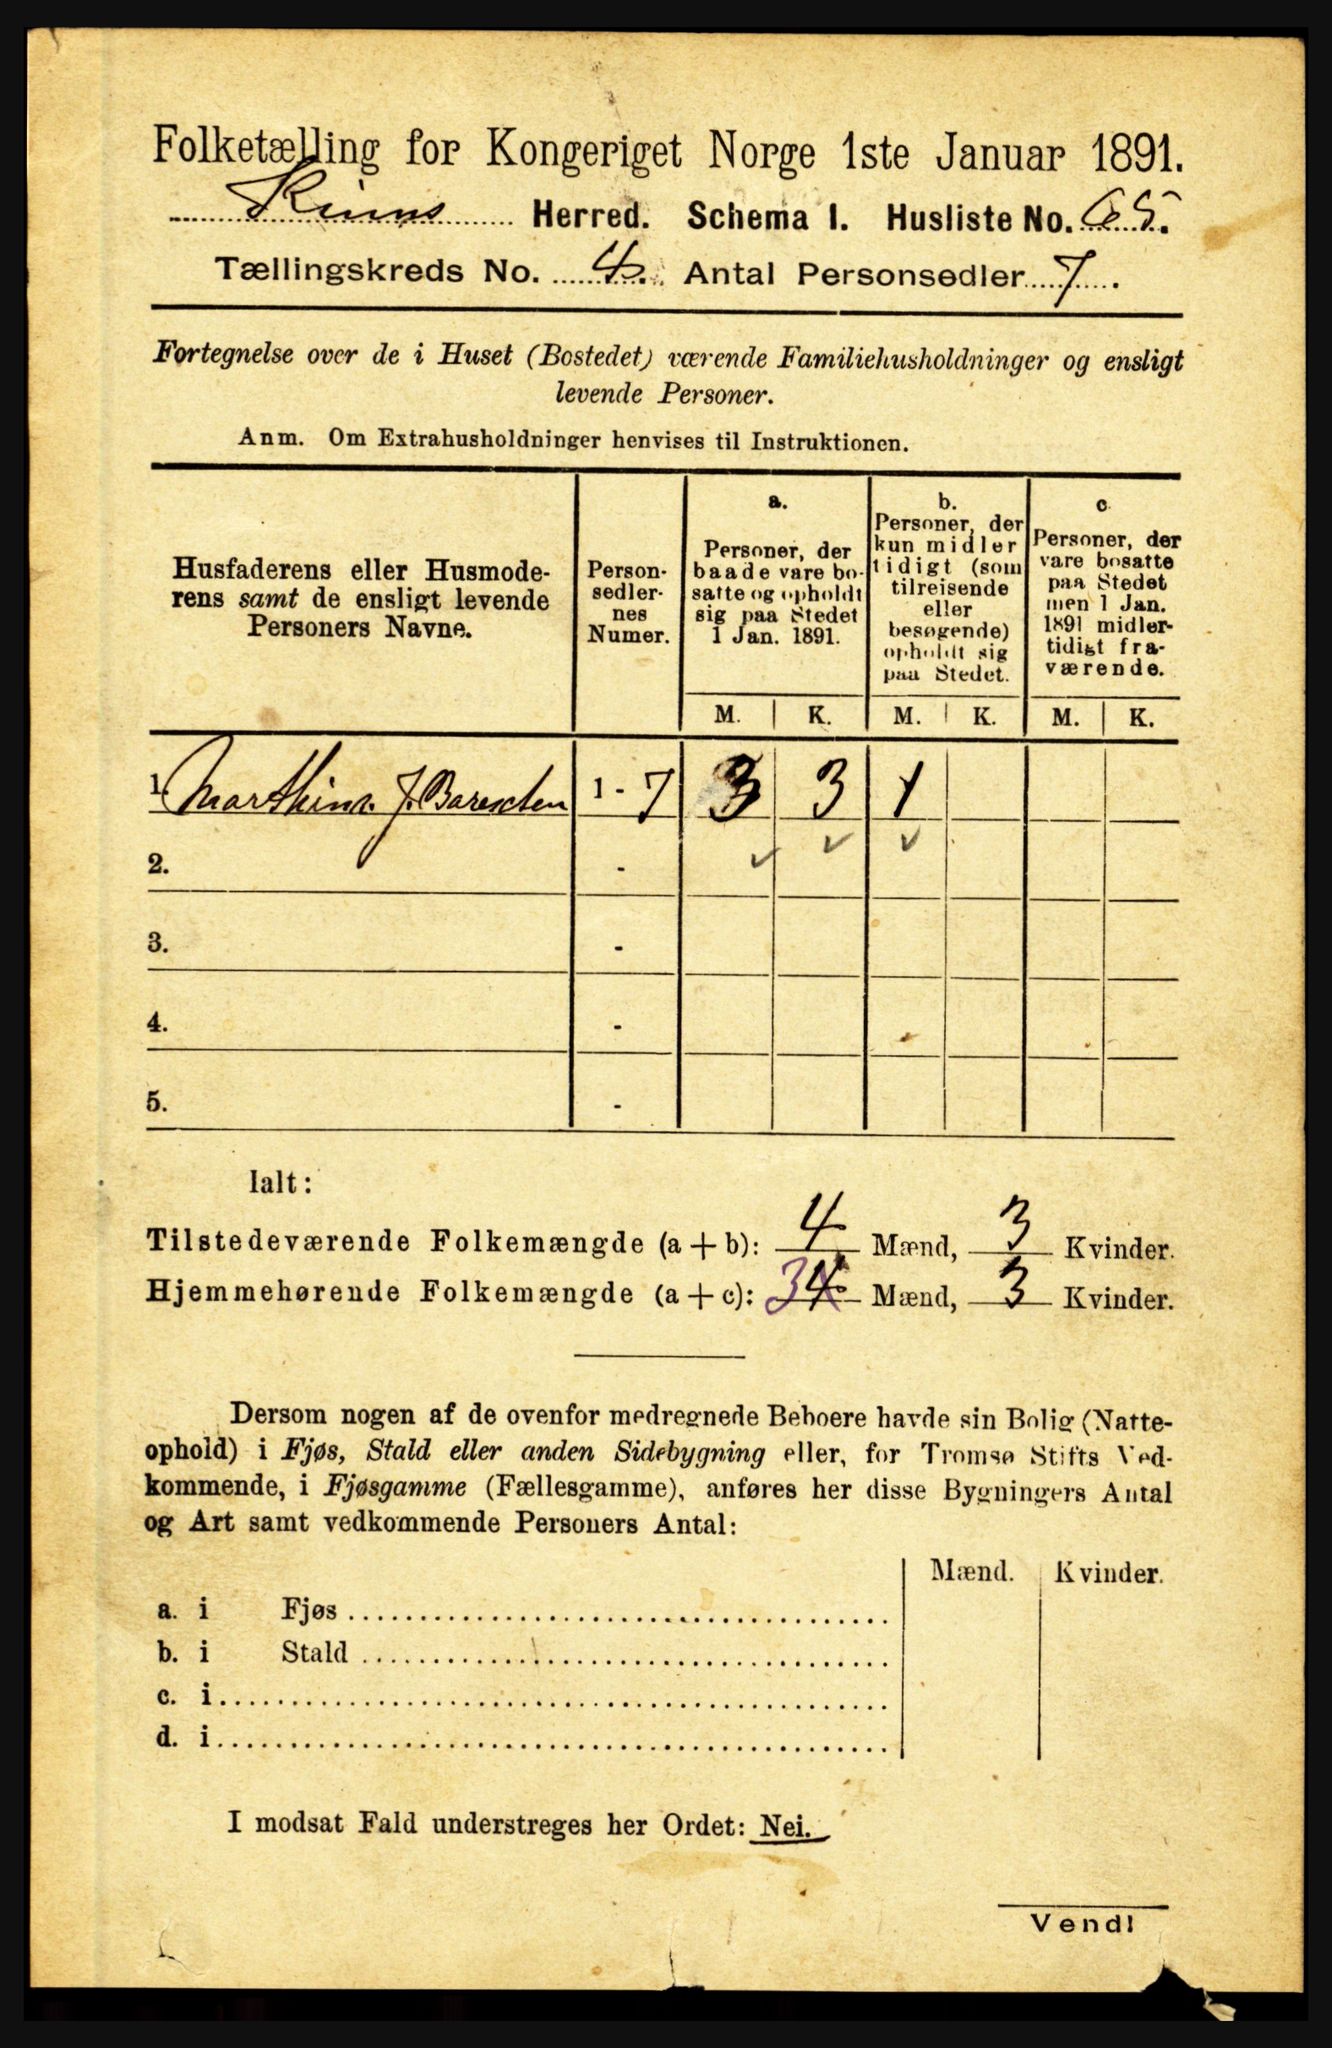 Folketælling for Kongeriget Norge 1ste Januar 1891.
Kinns Herred. Schema I. Husliste No. 65.
Tællingskreds No. 4. Antal Personsedler 7.
Fortegnelse over de i Huset (Bostedet) værende Familiehusholdninger og ensligt
levende Personer.
Anm. Om Extrahusholdninger henvises til Instruktionen.
Husfaderens eller Husmode-
rens samt de ensligt levende
Personers Navne.
Person-
sedler-
nes
Numer.
a.
Personer, der
baade vare bo-
satte og opholdt
sig paa Stedet
1 Jan. 1891.
b.
Personer, der
kun midler
tidigt (som
tilreisende
eller
besøgende)
opholdt sig
paa Stedet.
c
Personer, der
vare bosatte
paa Stedet
men 1 Jan.
1891 midler-
tidigt fra-
værende.
M. K. M. K. M. K.
1 Marthinus J. 1 - 7 3 3 1
2. -
3. -
4. -
5. -
Ialt:
Tilstedeværende Folkemængde (a + b): 4 Mænd, 3 Kvinder.
Hjemmehørende Folkemængde (a + c): 3 4 Mænd, 3 Kvinder.
Dersom nogen af de ovenfor medregnede Beboere havde sin Bolig (Natte-
ophold) i Fjøs, Stald eller anden Sidebygning eller, for Tromsø Stifts Ved-
kommende, i Fjøsgamme (Fællesgamme), anføres her disse Bygningers Antal
og Art samt vedkommende Personers Antal:
Mænd. Kvinder.
a. i Fjøs
b. i Stald
c. i
d. i
I modsat Fald understreges her Ordet: Nei.
Vend!